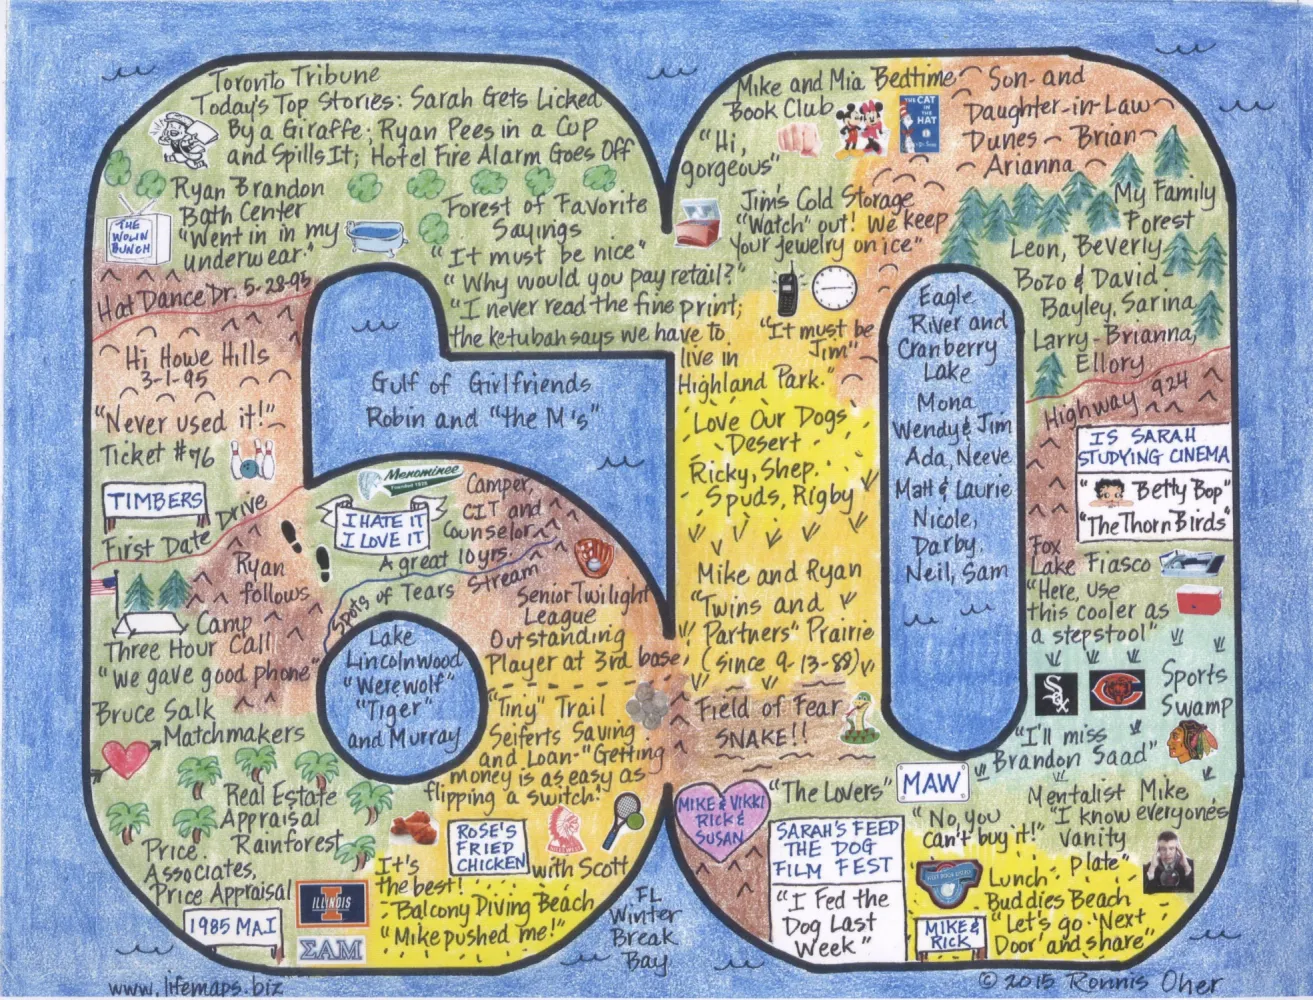 Toronto Tribune
Today's Top Stories: Sarah Gets Licked
By a Giraffe; Ryan Pees in a Cup
and Spills It; Hotel Fire Alarm Goes Off
Ryan Brandon
Bath Center
"Went in in my
underwear."
THE
WOLIN
BUNCH
Forest of Favorite
Sayings
"It must be nice"
"Why would you pay retail?"
"I never read the fine print;
the ketubah says we have to
live in
Highland Park."
Hat Dance Dr. 5-28-95
Hi Howe Hills
3-1-95
"Never used it!"
Ticket #76
TIMBERS
First Date
Drive
Ryan
follows
Camp
Three Hour Call
"we gave good phone"
Bruce Salk
Matchmakers
Real Estate
Appraisal
Rainforest
Price
Associates,
Price Appraisal
1985 MAI
ILLINOIS
ΣΑΜ
Gulf of Girlfriends
Robin and "the M's"
Menominee
Founded 1928
I HATE IT
I LOVE IT
Camper,
CIT and
Counselor
A great 10 yrs.
Spots of Tears Stream
Senior Twilight
League
Outstanding
Player at 3rd base
Lake
Lincolnwood
"Werewolf"
"Tiger"
and Murray
"Tiny" Trail
Seiferts Saving
and Loan-"Getting
money is as easy as
flipping a switch."
ROSE'S
FRIED
CHICKEN
with Scott
It's
the best!
Balcony Diving Beach
"Mike pushed me!"
FL
Winter
Break
Bay
Mike and Mia Bedtime
Book Club
THE CAT
IN
THE
HAT
"Hi,
gorgeous"
Jim's Cold Storage
"Watch" out! We keep
your jewelry on ice"
"It must be
Jim"
Son- and
Daughter-in-Law
Dunes - Brian
Arianna
My Family
Forest
Leon, Beverly
Bozo & David-
Bayley, Sarina
Larry-Brianna,
Ellory
Highway 924
Eagle
River and
Cranberry
Lake
Mona
Wendy & Jim
Ada, Neeve
Matt & Laurie
Nicole,
Darby,
Neil, Sam
Love Our Dogs
Desert
Ricky, Shep.
Spuds, Rigby
Mike and Ryan
"Twins and
Partners" Prairie
(since 9-13-88)
Field of Fear
SNAKE!!
IS SARAH
STUDYING CINEMA
"Betty Bop"
"The Thorn Birds"
Fox
Lake Fiasco
"Here, use
this cooler as
a stepstool"
Sox
Sports
Swamp
"I'll miss
Brandon Saad"
MIKE & VIKKI
RICK &
SUSAN
"The Lovers"
MAW
"No, you
can't buy it!"
Mentalist Mike
"I know everyone's
vanity
plate"
SARAH'S FEED
THE DOG
FILM FEST
"I Fed the
Dog Last
Week"
Lunch
Buddies Beach
"Let's go 'Next
Door' and share"
MIKE &
RICK
www.lifemaps.biz
© 2015 Ronnis Oher